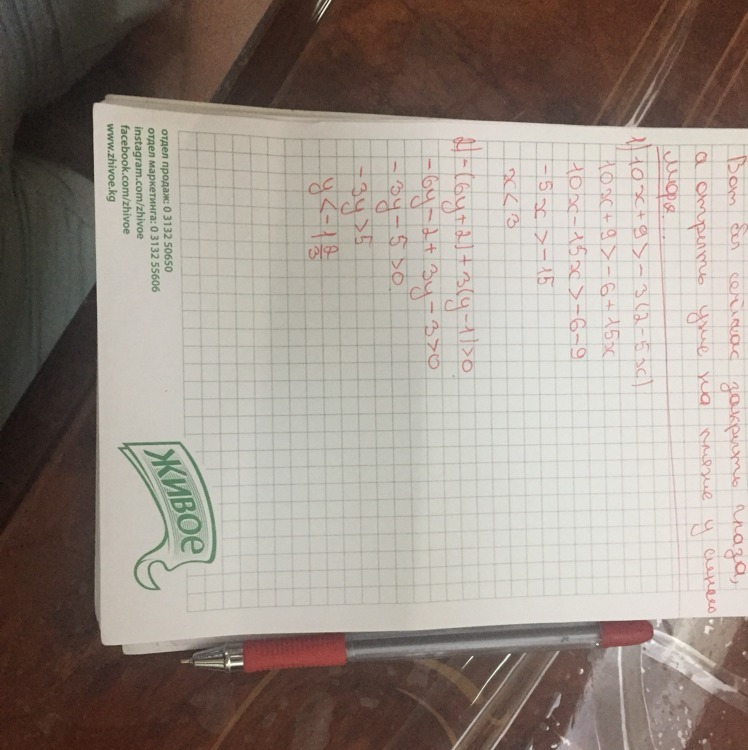 Вот бы сейчас закрыть глаза,
а открыть уже на пляже у синего
моря...
1) 10x+9>-3(2-5x)
10x+9>-6+15x
10x-15x>-6-9
-5x>-15
x<3
2) -(6y+2)+3(y-1)>0
-6y-2+3y-3>0
-3y-5>0
-3y>5
y<-1 2/3
отдел продаж: 0 3132 50650
отдел маркетинга: 0 3132 55606
instagram.com/zhivoe
facebook.com/zhivoe
www.zhivoe.kg
ЖИВОЕ